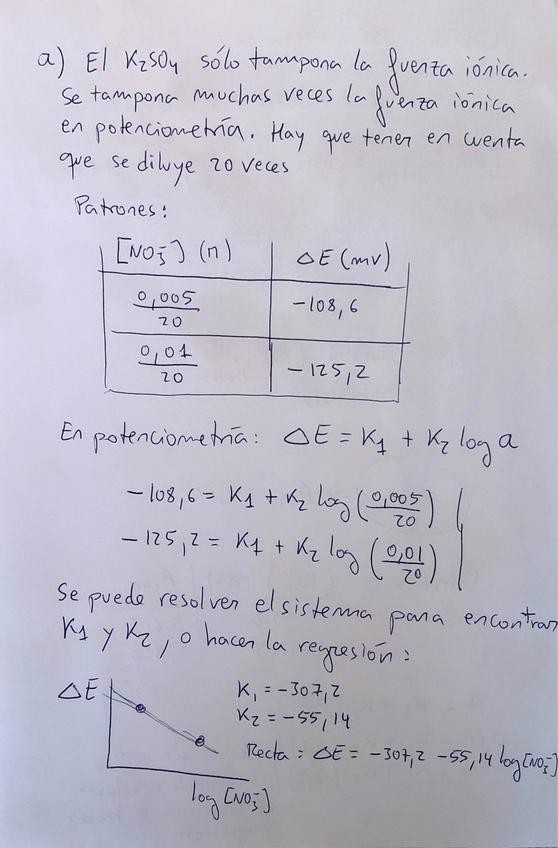 a) El K₂SO₄ sólo tampona la fuerza iónica.
Se tampona muchas veces la fuerza iónica
en potenciometría. Hay que tener en cuenta
que se diluye 20 veces
Patrones:
[NO₃⁻] (M) ΔE (mV)
0,005/20 -108,6
0,01/20 -125,2
En potenciometría: ΔE = K₁ + K₂ log a
-108,6 = K₁ + K₂ log (0,005/20)
-125,2 = K₁ + K₂ log (0,01/20)
Se puede resolver el sistema para encontrar
K₁ y K₂, o hacer la regresión:
ΔE
K₁ = -307,2
K₂ = -55,14
Recta: ΔE = -307,2 -55,14 log[NO₃⁻]
log [NO₃⁻]